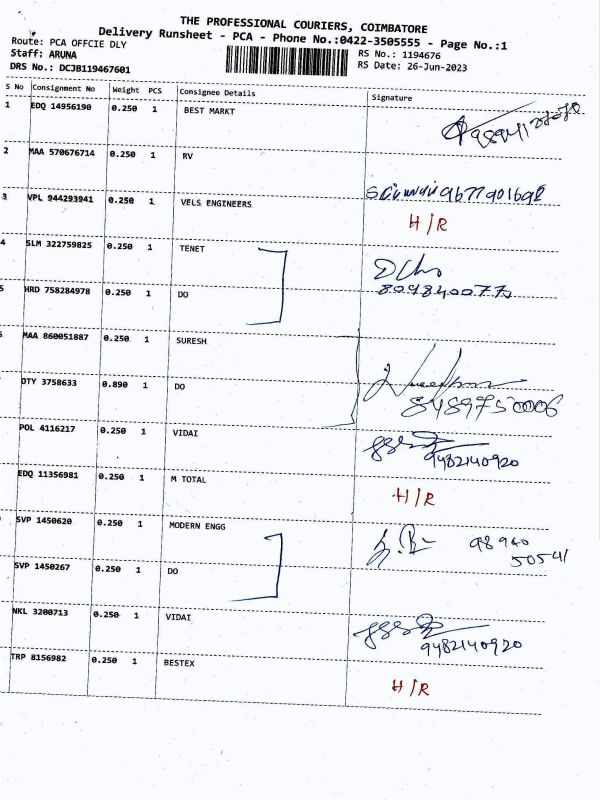 THE PROFESSIONAL COURIERS, COIMBATORE
Delivery Runsheet - PCA - Phone No.:0422-3505555 - Page No.:1
Route: PCA OFFCIE DLY
RS No.: 1194676
Staff: ARUNA
RS Date: 26-Jun-2023
DRS No.: DCJB119467601
S No Consignment No Weight PCS Consignee Details Signature
1 EDQ 14956190 0.250 1 BEST MARKT
2 MAA 570676714 0.250 1 RV
9677901692
3 VPL 944293941 0.250 1 VELS ENGINEERS H/R
4 SLM 322759825 0.250 1 TENET
5 HRD 758284978 0.250 1 DO
MAA 860051887 0.250 1 SURESH
OTY 3758633 0.890 1 DO
8489750006
POL 4116217 0.250 1 VIDAI
9482140920
EDQ 11356981 0.250 1 M TOTAL H/R
SVP 1450620 0.250 1 MODERN ENGG
98940
50541
SVP 1450267 0.250 1 DO
NKL 3200713 0.250 1 VIDAI
9482140920
TRP 8156982 0.250 1 BESTEX H/R